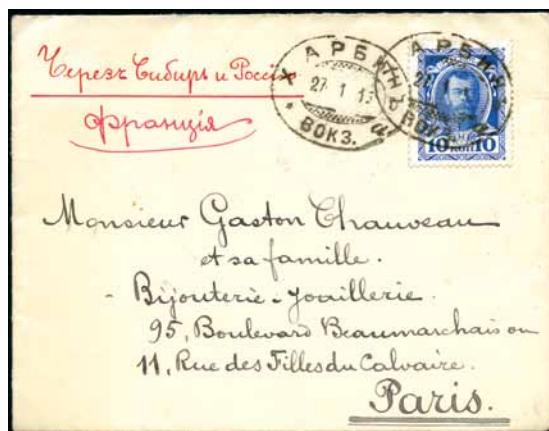 Черезъ Сибирь и Россію
Франція
ХАРБИНЪ
27 1 13
ВОКЗ.
а
ХАРБИНЪ
27 1
ВОКЗ.
10 КОП 10
Monsieur Gaston Chauveau
et sa famille.
- Bijouterie - Joaillerie.
95, Boulevard Beaumarchais ou
11, Rue des Filles du Calvaire.
Paris.